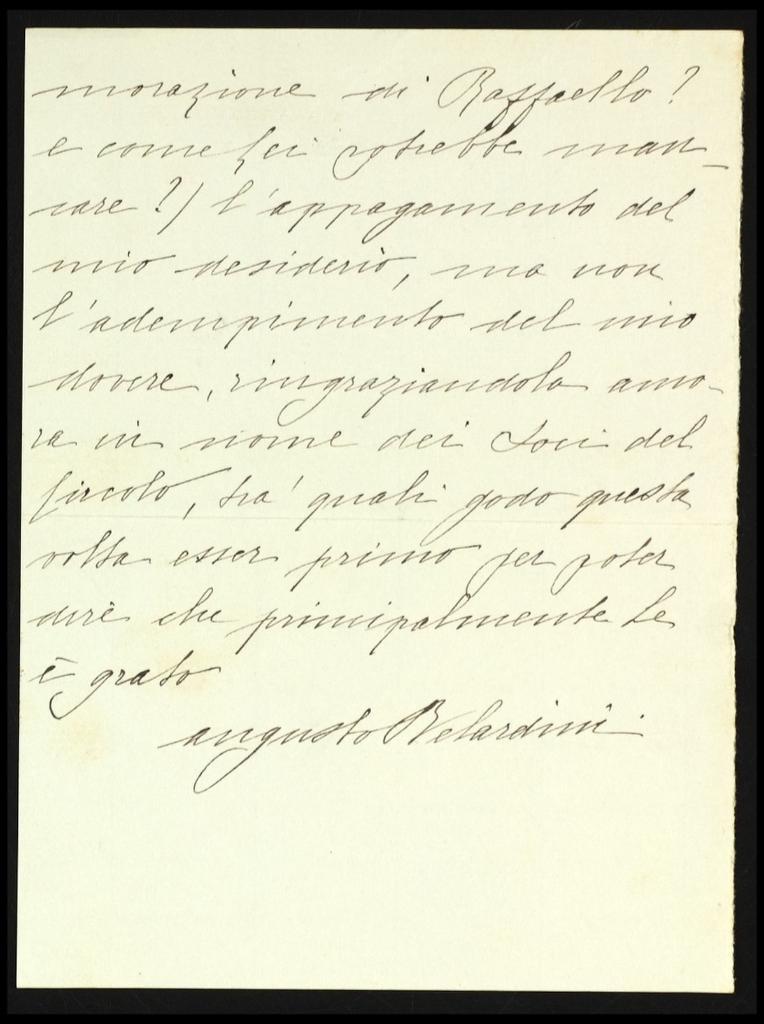 morazione di Raffaello?
e come Lei potrebbe man-
care?) l'appagamento del
mio desiderio, ma non
l'adempimento del mio
dovere, ringraziandola anco-
ra in nome dei Soci del
Circolo, tra' quali godo questa
volta esser primo per poter
dire che principalmente Le
è grato
Augusto Belardini